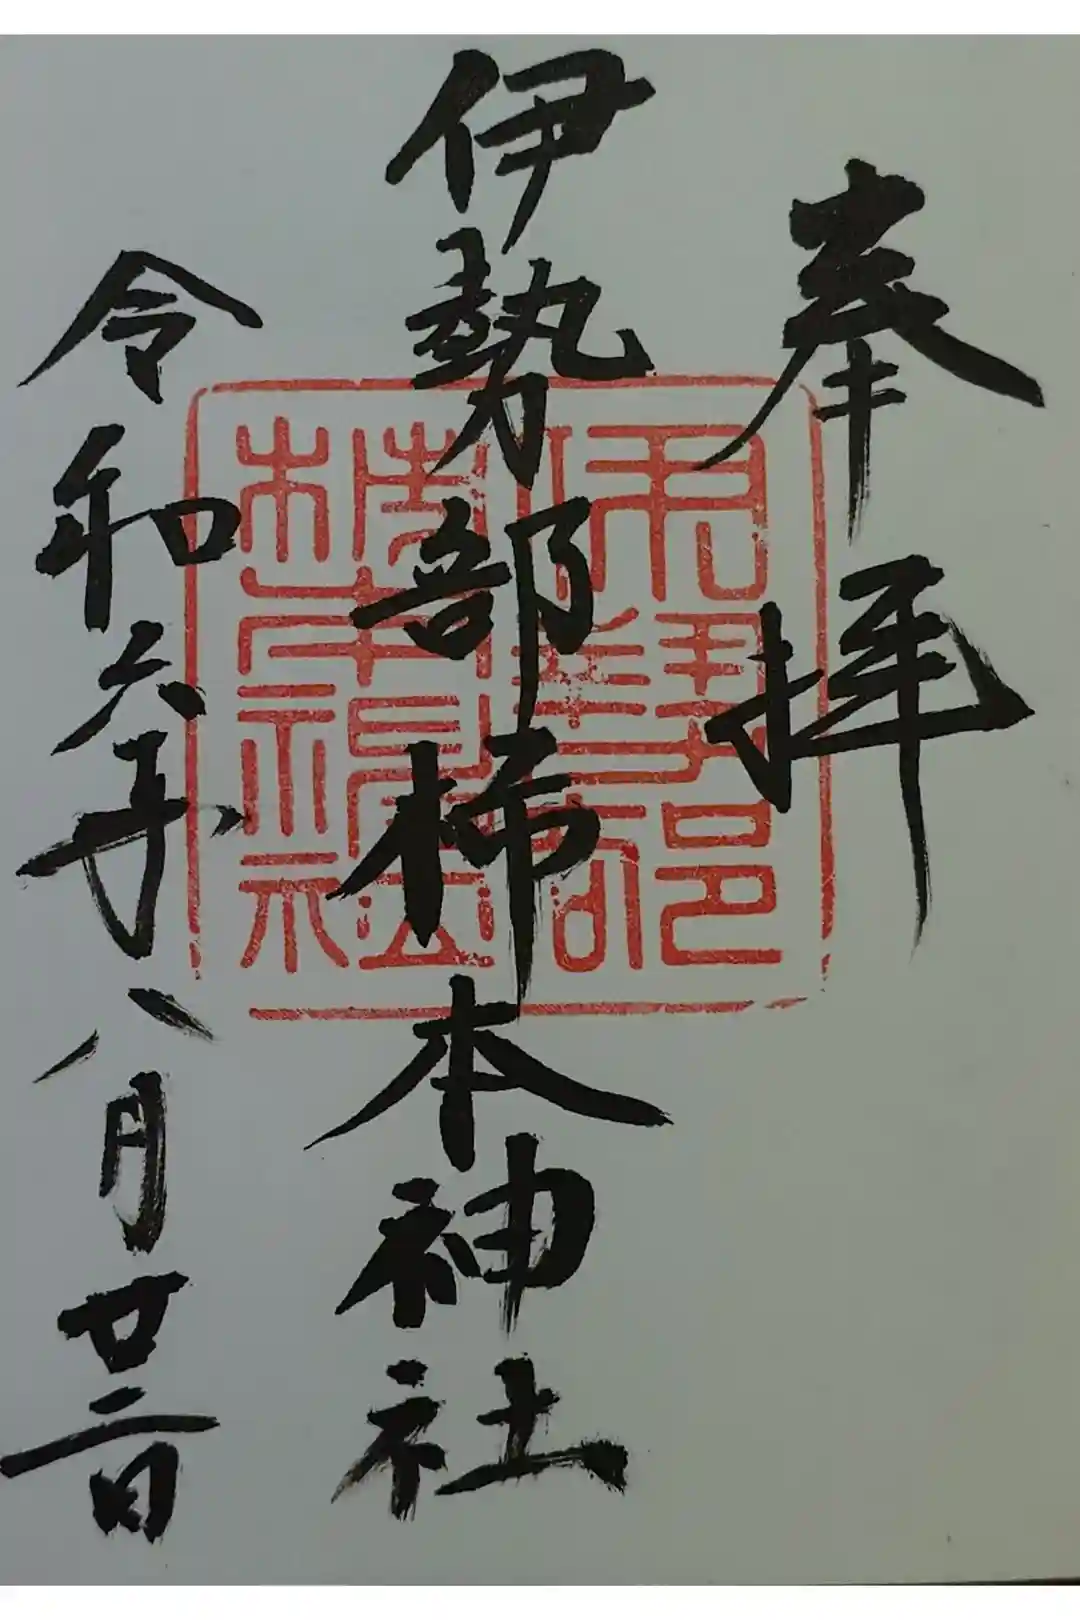 奉拝
伊勢部柿本神社
令和六年八月廿二日
伊勢部
柿本神社